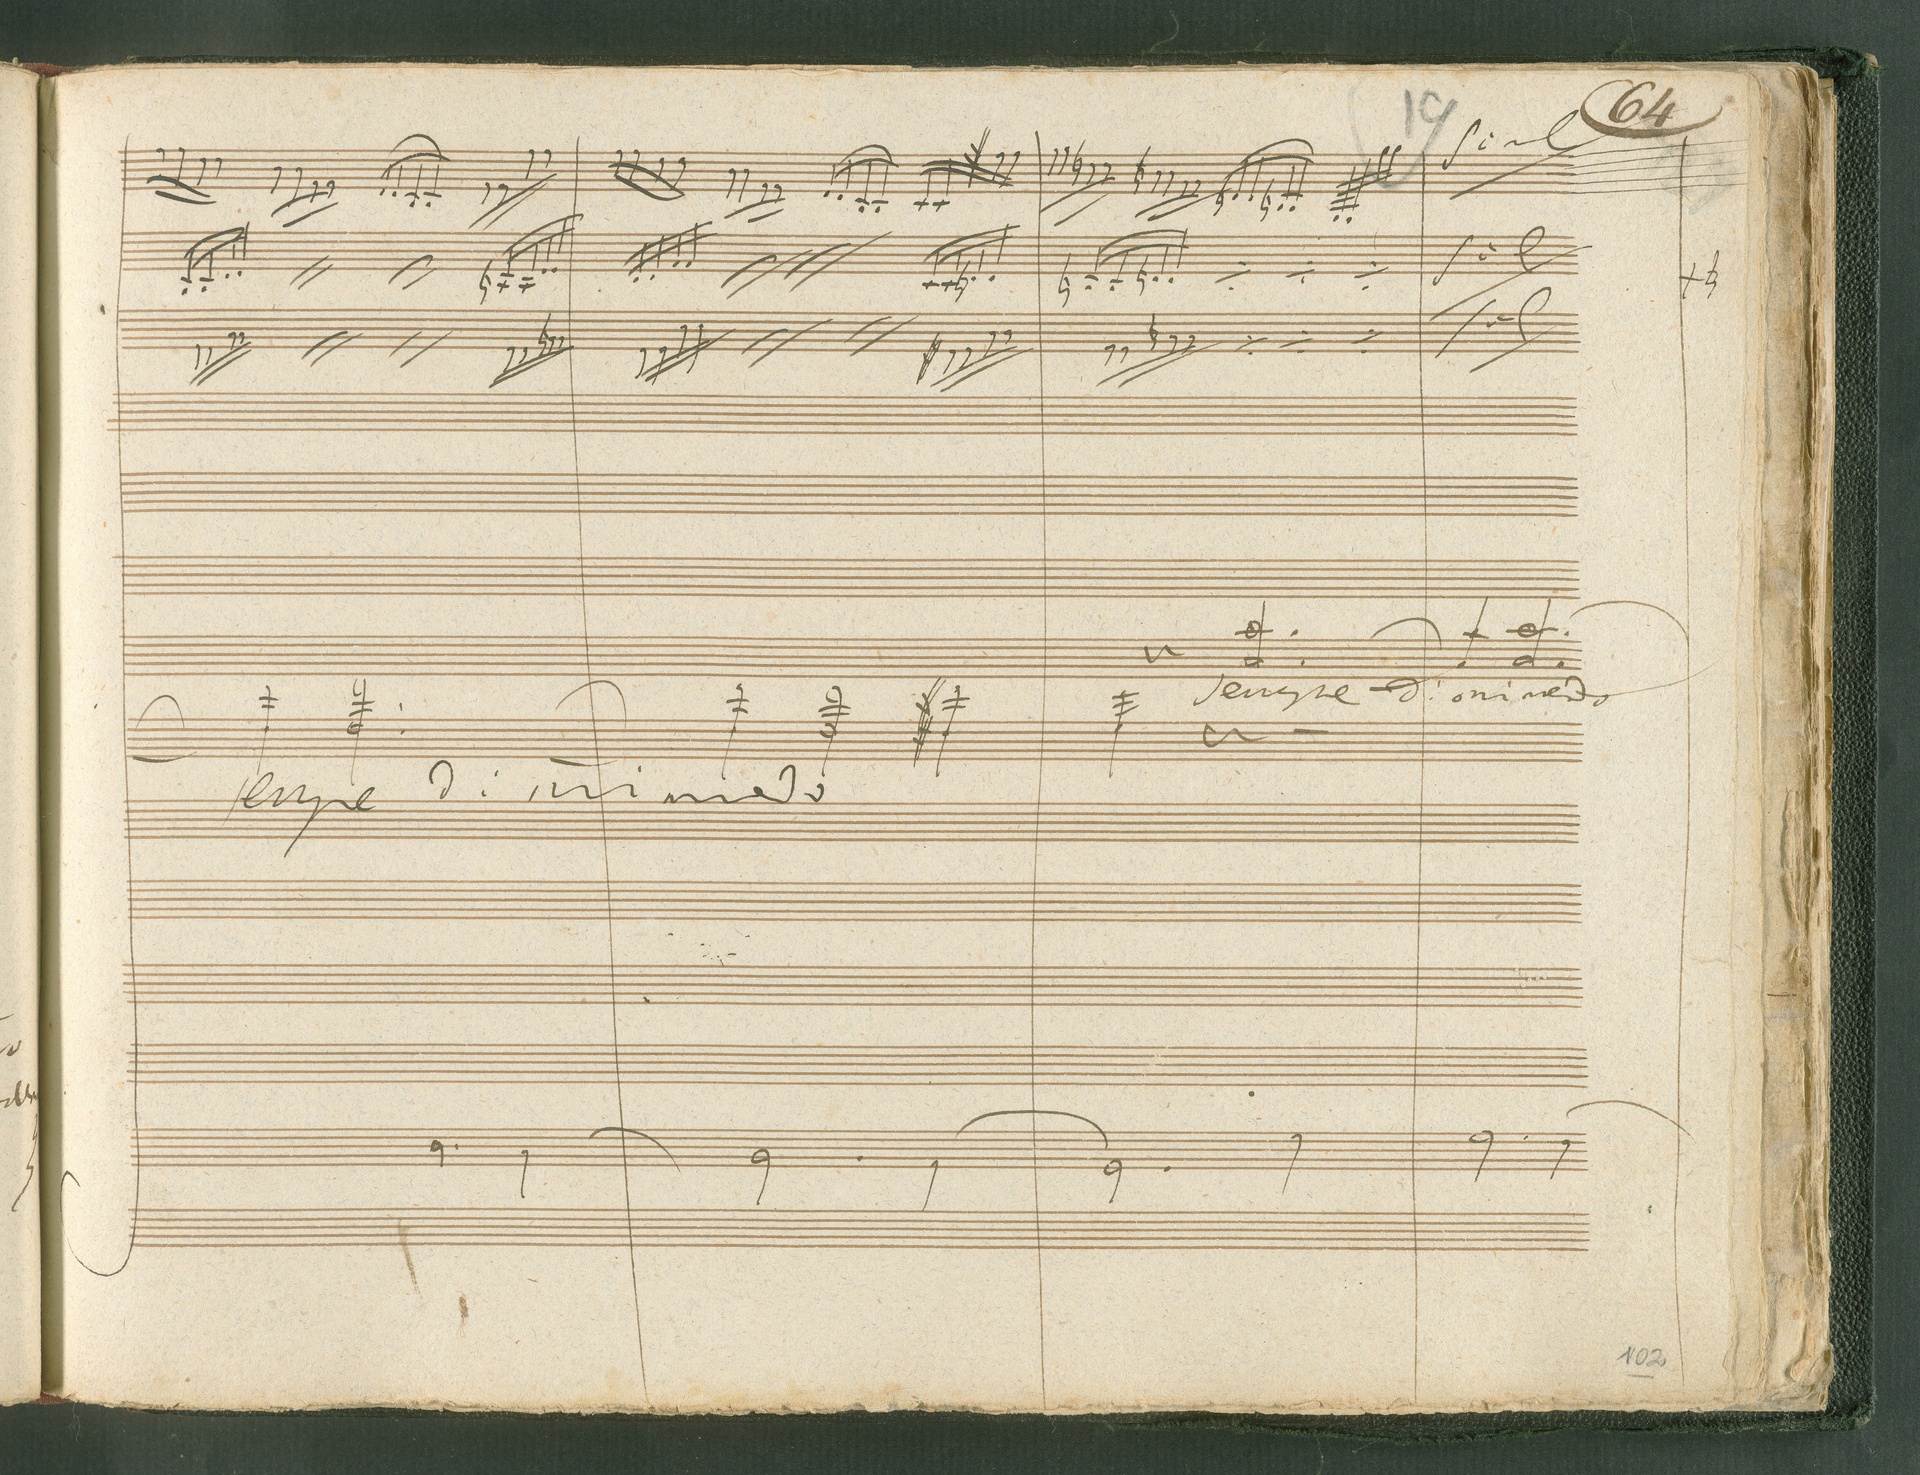 19
64
Siml
Siml
Siml
sempre diminuendo
sempre diminuendo
102